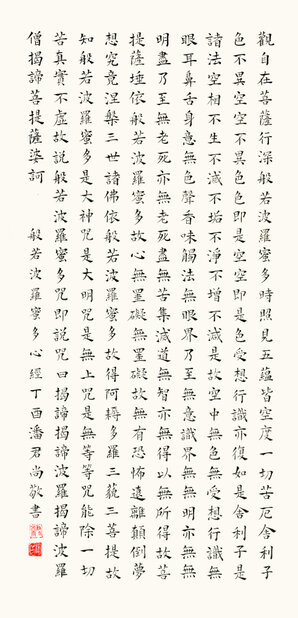 觀自在菩薩行深般若波羅蜜多時照見五蘊皆空度一切苦厄舍利子
色不異空空不異色色即是空空即是色受想行識亦復如是舍利子是
諸法空相不生不滅不垢不淨不增不減是故空中無色無受想行識無
眼耳鼻舌身意無色聲香味觸法無眼界乃至無意識界無無明亦無無
明盡乃至無老死亦無老死盡無苦集滅道無智亦無得以無所得故菩
提薩埵依般若波羅蜜多故心無罣礙無罣礙故無有恐怖遠離顛倒夢
想究竟涅槃三世諸佛依般若波羅蜜多故得阿耨多羅三藐三菩提故
知般若波羅蜜多是大神咒是大明咒是無上咒是無等等咒能除一切
苦真實不虛故說般若波羅蜜多咒即說咒曰揭諦揭諦波羅揭諦波羅
僧揭諦菩提薩婆訶 般若波羅蜜多心經丁酉潘君尚敬書